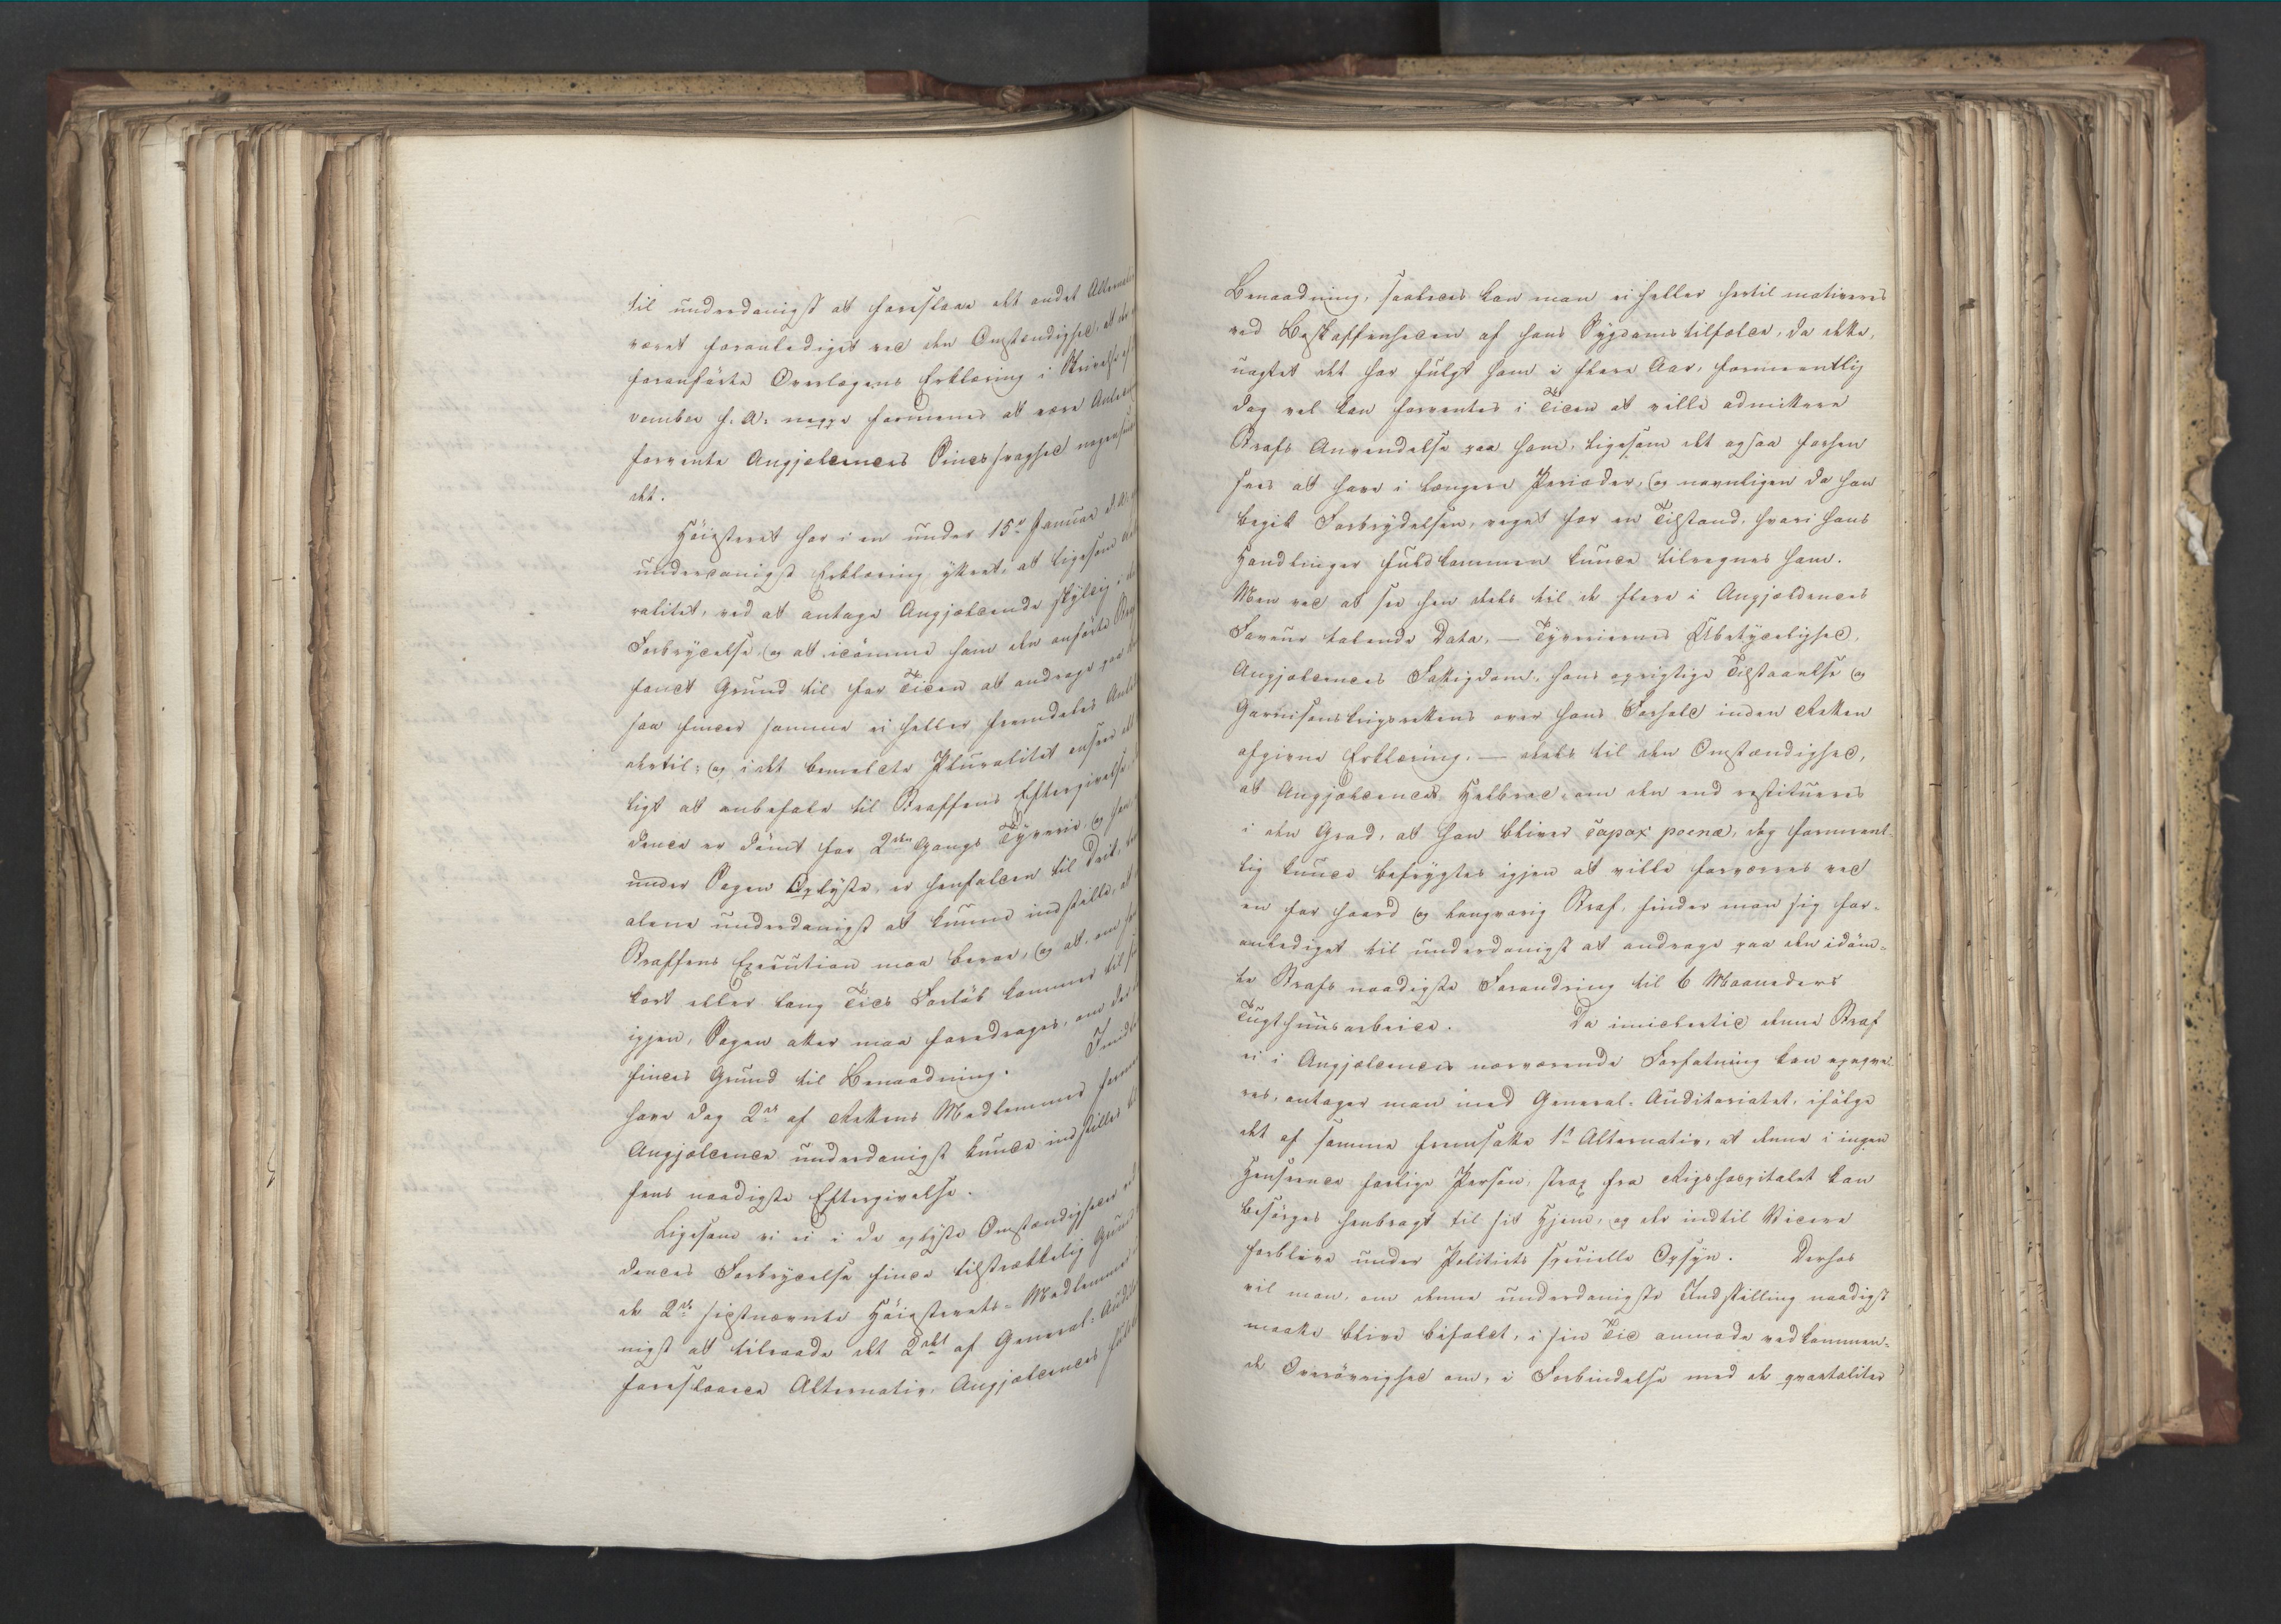 til underdanigst at foreslaae det andet Alterna
været foranlediget ved den Omstændighed, at
foranførte Overlægens Erklæring i Skrivelse
vember f. A. neppe formenes at være
forvente Angjældendes Sindssvaghed nogensin
det.
Höiesteret har i en under 15de Januar d. A.
underdanigst Erklæring yttret, at ligesom
ralitet, ved at antage Angjældende skyldig i
Forbrydelse, og at idømme ham den anførte
fandt Grund til for Tiden at andrage paa
saa finder samme ei heller fremdeles
dertil; og idet bemeldte Pluralitet anseer det
ligt at anbefale til Straffens Eftergivelse,
dende er dömt for 2den Gangs Tyverie, og
under Sagen Oplyste, er henfalden til Drik,
alene underdanigst at kunne indstille, at
Straffens Execution maa beroe, og at, om
kort eller lang Tids Forløb kommer til
igjen, Sagen atter maa foredrages, om der
findes Grund til Benaadning.
have dog 2de af Rettens Medlemmer
Angjældende underdanigst kunde indstilles
fens naadigste Eftergivelse.
Ligesom vi ei i de oplyste Omstændigheder
dendes Forbrydelse finde tilstrækkelig Grund
de 2de sidstnævnte Höiesterets-Medlemmer
nigst at tilraade det 2det af General-Audit
foreslaaede Alternativ, Angjældendes
Benaadning, saaledes kan man ei heller hertil motiveres
ved Beskaffenheden af hans Sygdomstilfælde, da dette,
uagtet det har fulgt ham i flere Aar, formeentlig
dog vel kan forventes i Tiden at ville admittere
Strafs Anvendelse paa ham, ligesom det ogsaa forhen
sees at have i længere Perioder, og navnligen da han
begik Forbrydelsen, veget for en Tilstand, hvori hans
Handlinger fuldkommen kunde tilregnes ham.
Men ved at see hen deels til de flere i Angjældendes
Faveur talende Data, — Tyveriernes Ubetydelighed,
Angjældendes Fattigdom, hans oprigtige Tilstaaelse og
Garnisonskrigsrettens over hans Forhold inden Retten
afgivne Erklæring, — deels til den Omstændighed,
at Angjældendes Helbred, om den end restitueres
i den Grad, at han bliver capax poenæ, dog formeent-
lig kunde befrygtes igjen at ville forværres ved
en for haard og langvarig Straf, finder man sig for-
anlediget til underdanigst at andrage paa den idøm-
te Strafs naadigste Forandring til 6 Maaneders
Tugthuusarbeide. Da imidlertid denne Straf
ei i Angjældendes nærværende Forfatning kan
res, antager man med General-Auditoriatet, ifølge
det af samme fremsatte 1ste Alternativ, at denne i ingen
Henseende farlige Person, strax fra Rigshospitalet kan
besørges henbragt til sit Hjem, og der indtil Videre
forblive under Politiets specielle Opsyn. Derhos
vil man, om denne underdanigste Indstilling naadigst
maatte blive bifaldt, i sin Tid anmode vedkommen-
de Overøvrighed om, i Forbindelse med de qvartaliter